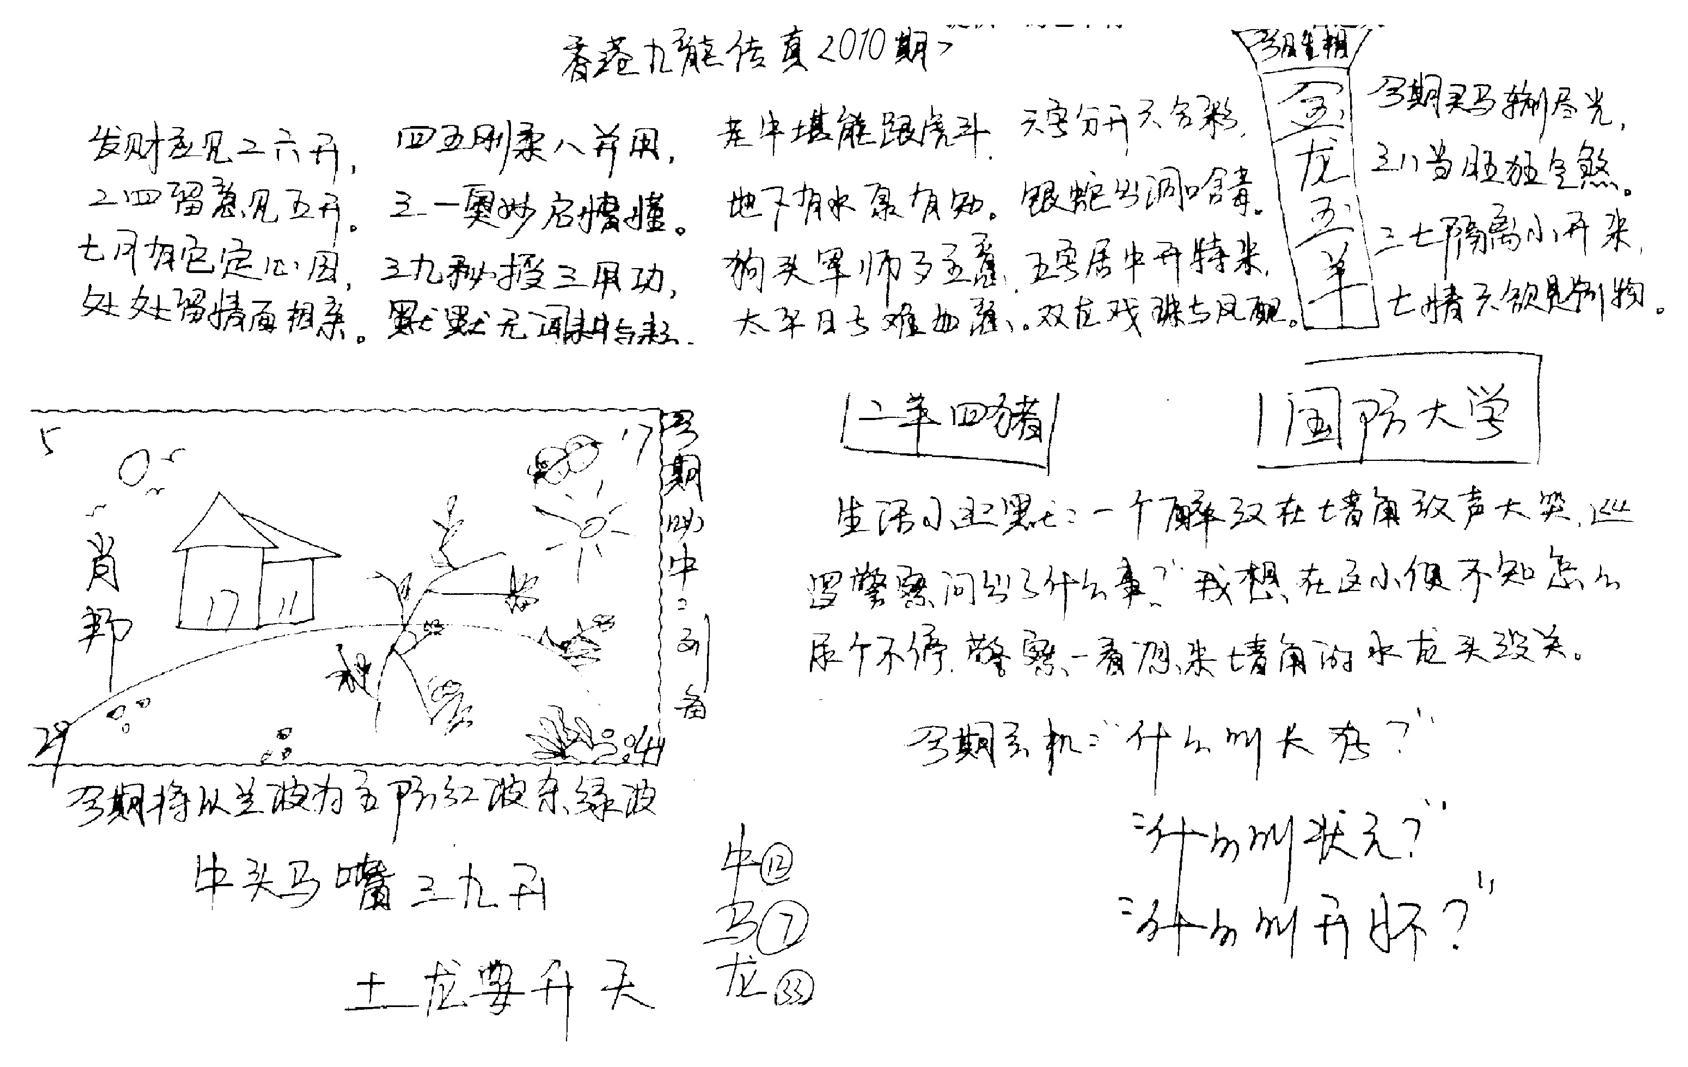 香港九龍传真<2010期>
今期生相
金
龙
五
羊
发财应见二六开，
二四留意见五开。
七月有它定心因，
处处留情面相亲。
四五刚柔八并用，
三一奥妙启懵懂。
三九秘授三用功，
默默无闻耕与耘.
老牛堪能跟虎斗.
地下有水泉有知。
狗头军师多主意.
太平日亏难如意、。
六字分开六合彩.
银蛇出洞口含毒。
五字居中开特来.
双龙戏珠与凤配。
今期买马输尽光，
三八当旺狂生煞。
三七隔离小开来，
七情六欲是别物。
二羊四猪
国防大学
5
17
肖
邦
17 11
29
44
今期吻中二列备
今期特以兰波为主防红波杂绿波
牛头马嘴三九开
土龙要升天
牛⑫
马⑦
龙㉝
生活小幽默：一个醉汉在墙角放声大哭.巡
逻警察问出了什么事？“我想在这小便不知怎么
尿个不停.警察一看原来墙角的水龙头没关。
今期玄机：“什么叫大
？”
“什么叫状元？”
“什么叫开怀？”